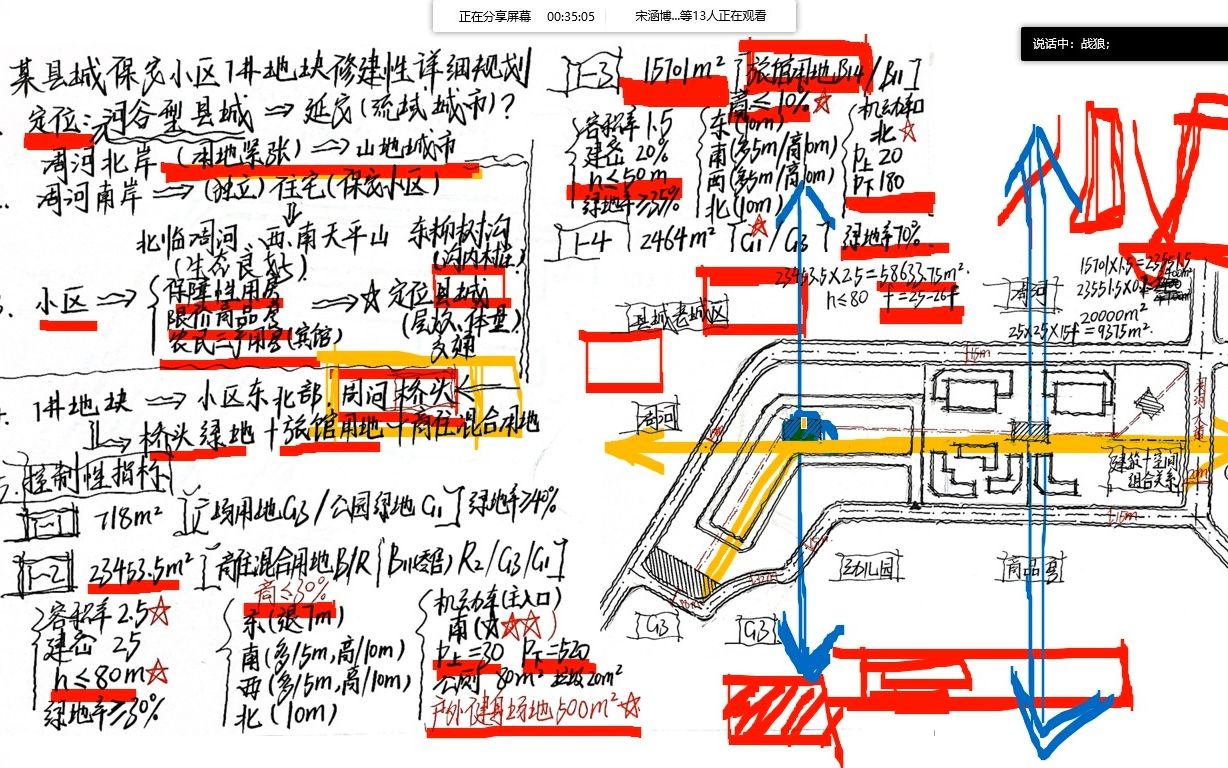 正在分享屏幕 00:35:05 宋涵博...等13人正在观看
说话中：战狼;
某县城保安小区1井地块修建性详细规划
定位：河谷型县城 ⇒ 延安（流域城市）？
周河北岸（用地紧张）⇒ 山地城市
周河南岸 ⇒（独立）住宅（保安小区）
北临周河、西、南天平山 东柳树沟
（生态良好）
小区 ⇒
保障性用房
限价商品房
农民三产用房（宾馆）
⇒ ☆ 定位县城
（层次、体量）
交通
1井地块 ⇒ 小区东北部，周河桥头
桥头绿地＋旅馆用地＋商住混合用地
控制性指标
1-1 718m² [广场用地G3/公园绿地G1] 绿地率≥40%
1-2 23453.5m² [商住混合用地B/R R2/G3/G1]
容积率2.5☆
建密 25
h≤80m☆
绿地率≥30%
商≤30%
东（退7m）
南（多15m，高10m）
西（多15m，高10m）
北（10m）
机动车（主入口）
南（☆☆☆）
P上=30 P下=520
公厕 80m² 垃圾20m²
户外健身场地500m²☆
1-3 15701m² [旅馆用地B14/B11]
容积率1.5
建密 20%
h≤50m
绿地率≥35%
商≤10%☆
东（10m）
南（多15m/高10m）
西（多15m/高10m）
北（10m）
机动车和
北☆
P上 20
P下 180
1-4 2464m² [G1/G3] 绿地率70%
23453.5×2.5=58633.75m².
h≤80 f=25-26f
15701×1.5=23551.5
20000m²
25×25×15f=9375m².
县城老城区
周河
周河
15m
建筑+空间
组合关系
15m
幼儿园
商品房
G3
G3